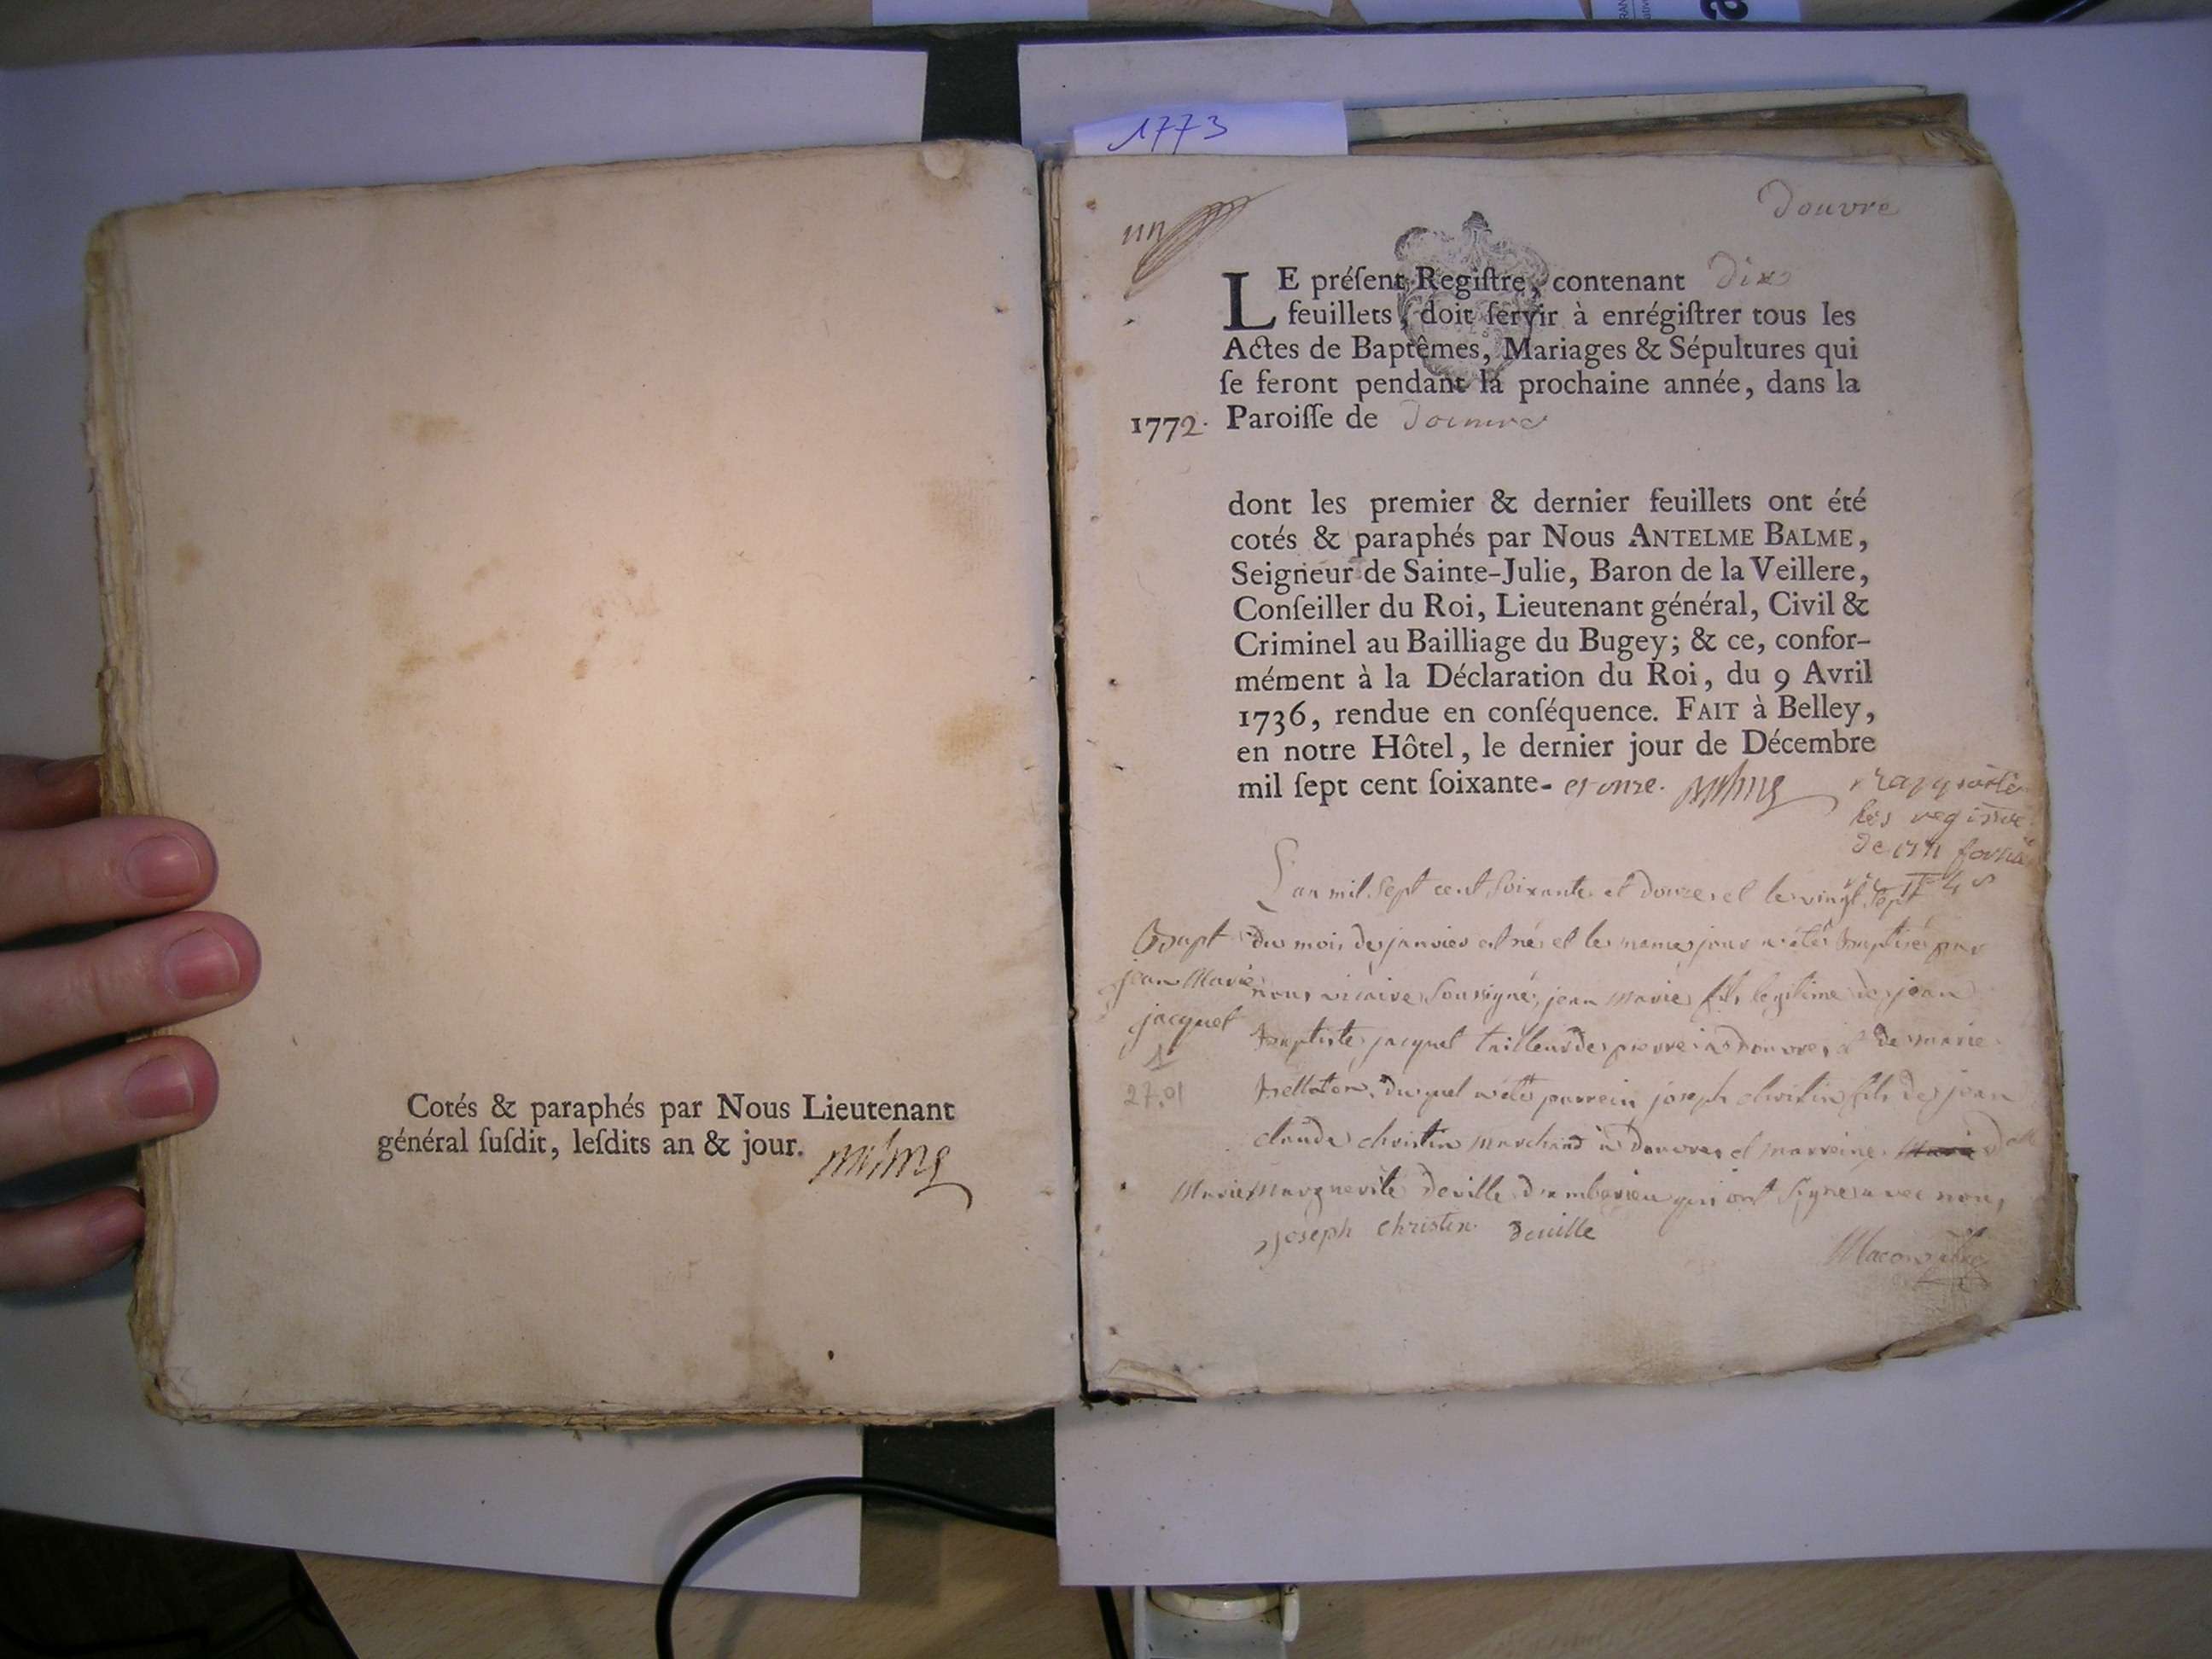 Cotés & paraphés par Nous Lieutenant
général ſuſdit, leſdits an & jour.
1773
un
Douvre
LE préſent Regiſtre, contenant Dix
feuillets, doit ſervir à enrégiſtrer tous les
Actes de Baptêmes, Mariages & Sépultures qui
ſe feront pendant la prochaine année, dans la
1772. Paroiſſe de Douvre
dont les premier & dernier feuillets ont été
cotés & paraphés par Nous ANTELME BALME,
Seigneur de Sainte-Julie, Baron de la Veillere,
Conſeiller du Roi, Lieutenant général, Civil &
Criminel au Bailliage du Bugey; & ce, confor-
mément à la Déclaration du Roi, du 9 Avril
1736, rendue en conſéquence. FAIT à Belley,
en notre Hôtel, le dernier jour de Décembre
mil ſept cent ſoixante- et onze.
les registre
de 1771
L'an mil Sept cent Soixante et douze, et le vingt Sept
du mois de janvier est né et le meme jour a été baptisé par
nous vicaire Soussigné, jean marie fils legitime de jean
baptiste jacquet tailleur de pierre a douvres et de marie
duquel a été parrein joseph christin fils de jean
claude christin marchand a douvres et marreine
Marie Marguerite deville d'ambérieu qui ont Signe avec nous
Bapt
jean Marie
jacquet
1
27.01
joseph christin deville